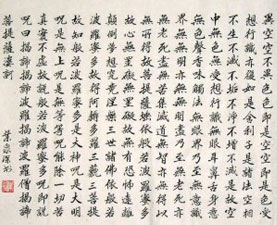 異空空不異色色即是空空即是色受
想行識亦復如是舍利子是諸法空相
不生不滅不垢不淨不增不減是故空
中無色無受想行識無眼耳鼻舌身意
無色聲香味觸法無眼界乃至無意識
界無無明亦無無明盡乃至無老死亦
無老死盡無苦集滅道無智亦無得以
無所得故菩提薩埵依般若波羅蜜多
故心無罣礙無罣礙故無有恐怖遠離
顛倒夢想究竟涅槃三世諸佛依般若
波羅蜜多故得阿耨多羅三藐三菩提
故知般若波羅蜜多是大神咒是大明
咒是無上咒是無等等咒能除一切苦
真實不虛故說般若波羅蜜多咒即說
咒曰揭諦揭諦波羅揭諦波羅僧揭諦
菩提薩婆訶